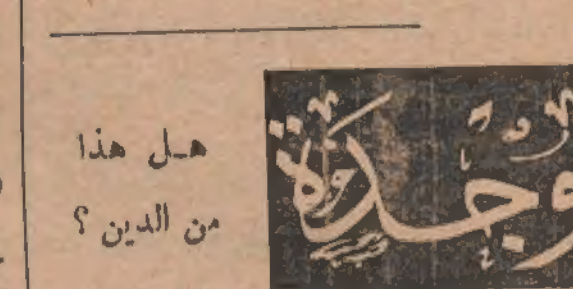 وجدة
هل هذا
من الدين ؟